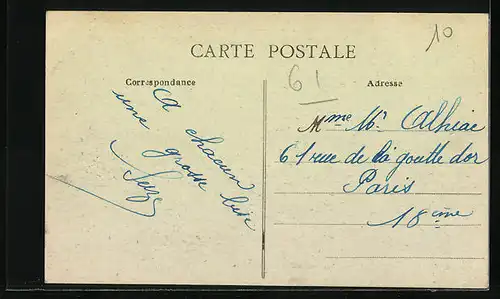 10
CARTE POSTALE
61
Correspondance
Adresse
a chacun
une grosse bise
Suze
Mme Mr Calhiac
61 rue de la goutte d'or
Paris
18eme